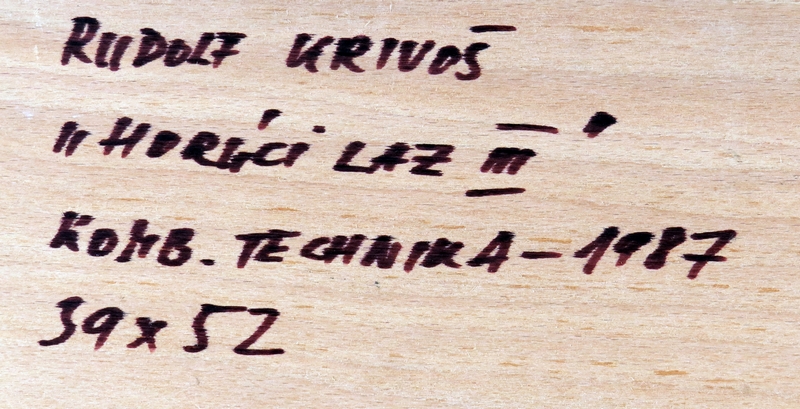 RUDOLF KRIVOŠ
"HORÚCI LAZ III"
KOMB. TECHNIKA - 1987
39 x 52